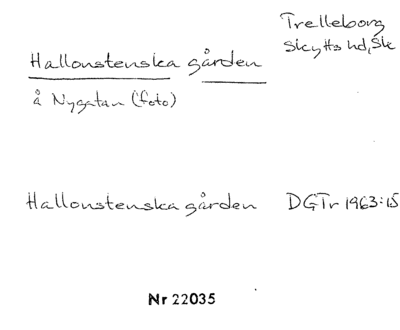 Trelleborg
Skytts hd, Sk
Hallonstenska gården
å Nygatan (foto)
Hallonstenska gården DGTr 1963:15
Nr 22035